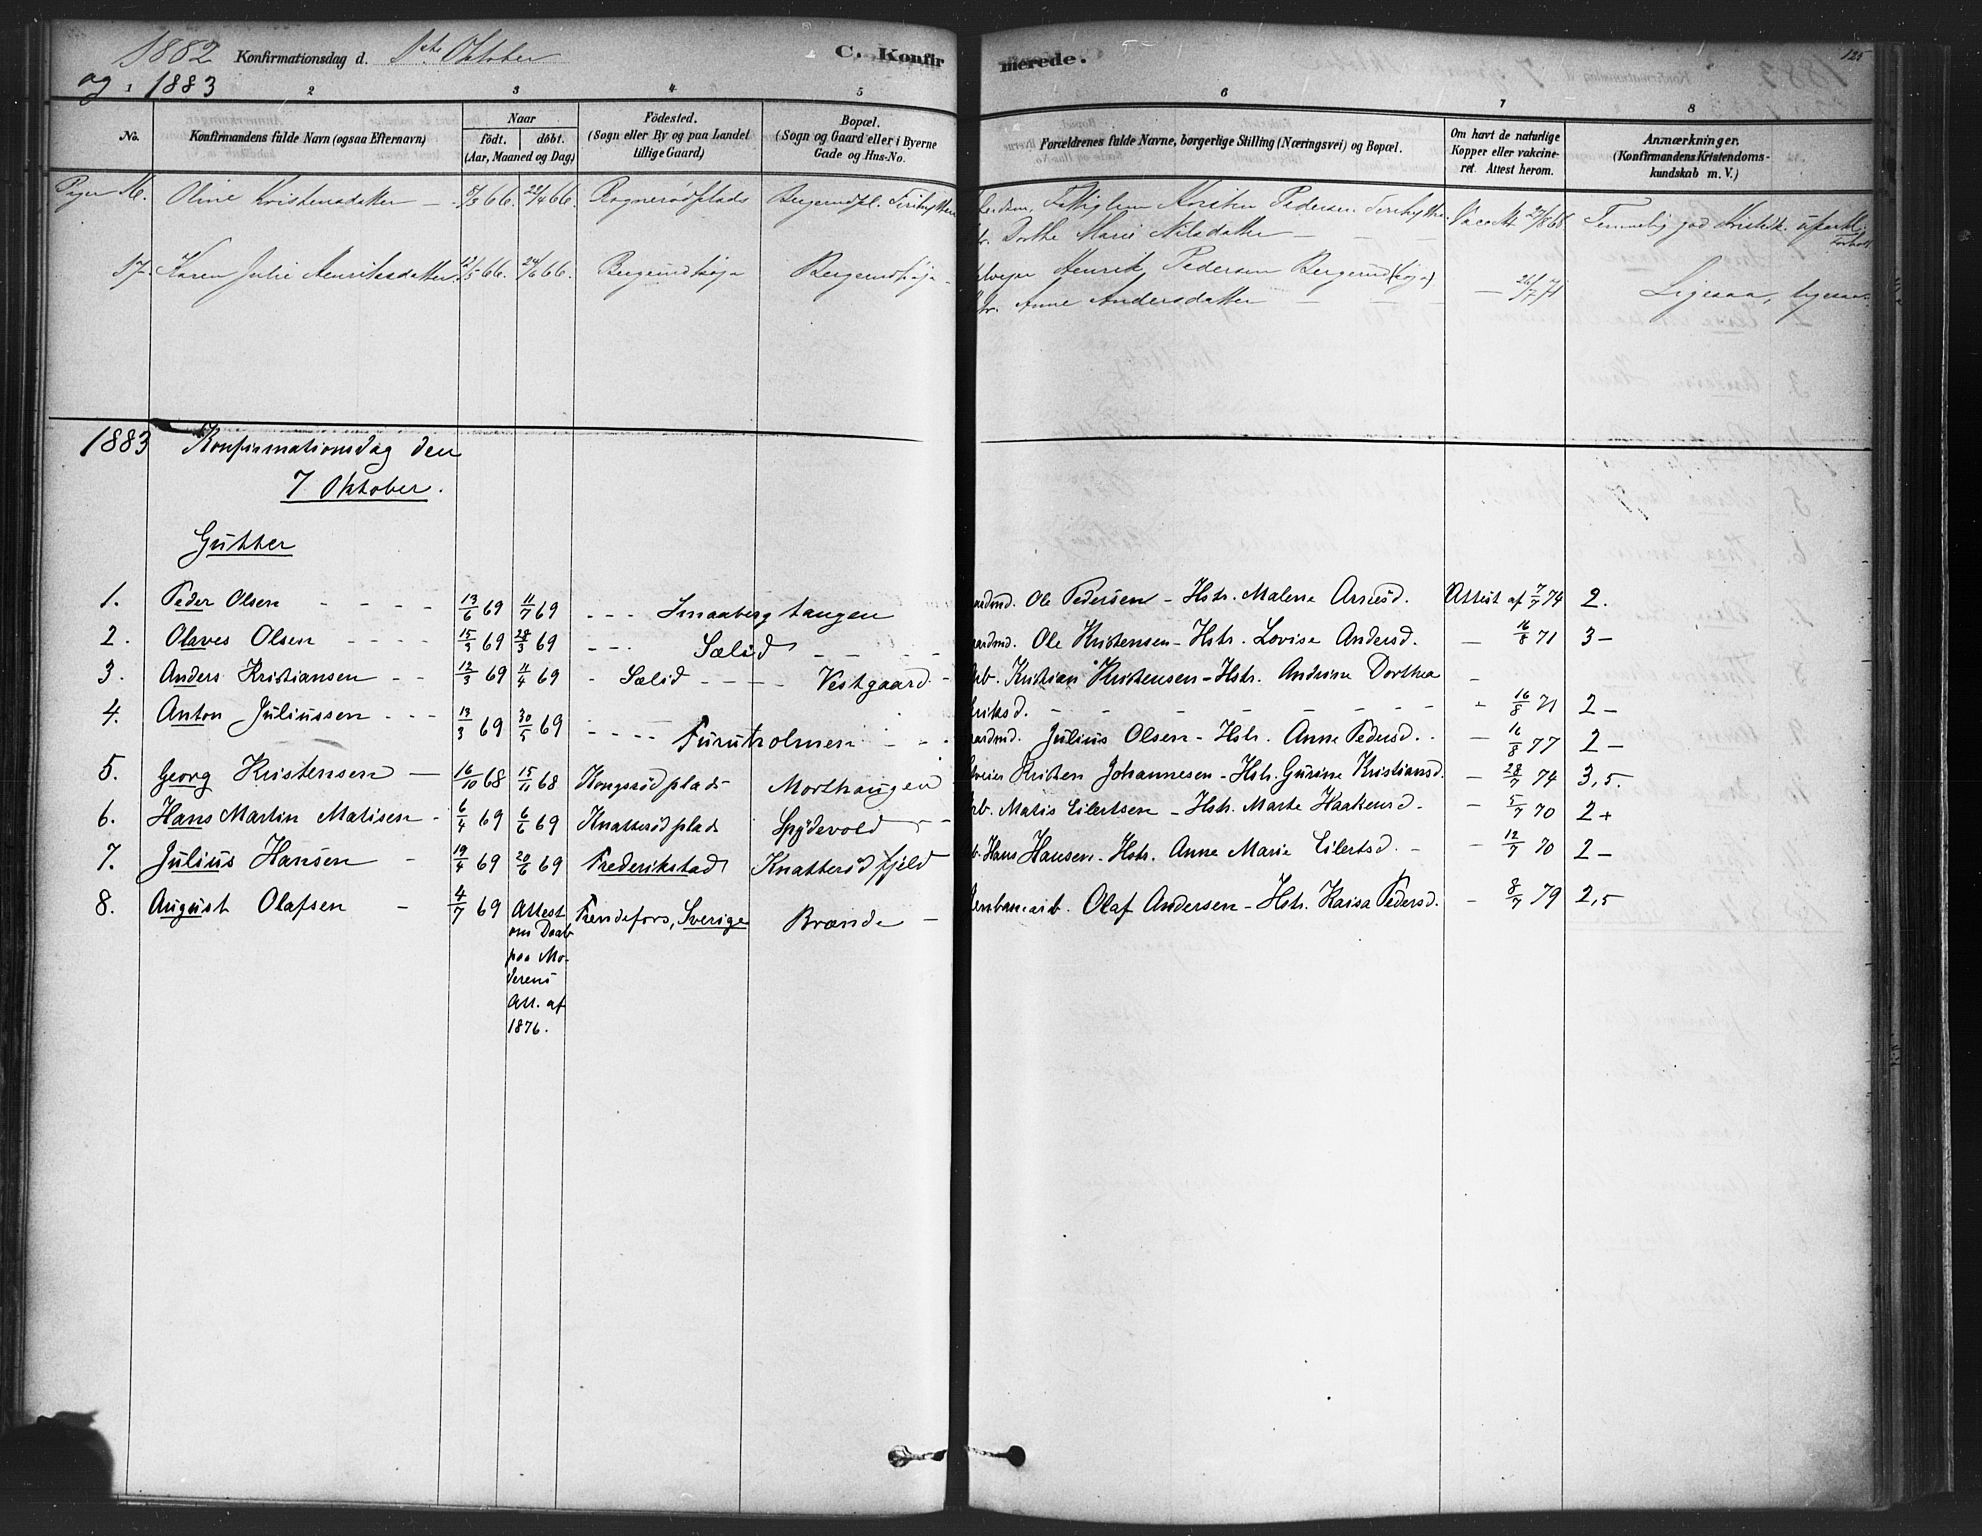 1882 Konfirmationsdag d. 1ste Oktober C. Konfirmerede. 125
og 1883
1 2 3 4 5 6 7 8
No. Konfirmandens fulde Navn (ogsaa Efternavn) Naar født. døbt. (Aar, Maaned og Dag) Fødested. (Sogn eller By og paa Landet tillige Gaard) Bopæl. (Sogn og Gaard eller i Byerne Gade og Hus-No. Forældrenes fulde Navne, borgerlige Stilling (Næringsvei) og Bopæl. Om havt de naturlige Kopper eller vakcineret. Attest herom. Anmærkninger. (Konfirmandens Kristendomskundskab m. V.)
Piger 16. Oline Kristensdatter 66. 22/4 66. Kirsten Pedersen Vacc. Att 27/8 68 Temmelig god Kristdk.
Dorthe Marie Nilsdatter
17. Karen Julie Henriksdatter 12/5 66. 24/6 66. Bergerudhøja Bergerudhøja Henrik Pedersen Bergerud(høja) — 26/7 71 Ligesaa, ligesaa
Anne Andersdatter
1883 Konfirmationsdag den
7 Oktober.
Gutter
1. Peder Olsen - - - - 13/6 69 11/7 69 - - - Smaabergtangen aardmd. Ole Pedersen - Hstr. Malene Arnesd. Attest af 7/7 74 2.
2. Olaves Olsen - - - - 15/3 69 28/3 69 - - - Sælid - - - - aardmd. Ole Kristensen - Hstr. Lovise Andersd. - 16/8 71 3 -
3. Anders Kristiansen - - 12/3 69 11/4 69 - Sælid - - - - Vestgaard - rb. Kristian Kristensen - Hstr. Andrine Dorthea -
riksd. - - - - - - - " 16/8 71 2 -
4. Anton Juliussen - - - 13/3 69 30/5 69 - - - - Furuholmen - - - aardmd. Julius Olsen - Hstr. Anne Pedersd. - - 16/8 77 2 -
5. Georg Kristensen — 16/10 68 15/11 68 Kongsrødplads Morthaugen Kristen Johannesen - Hstr. Gurine Kristiansd. - 28/7 74 3,5.
6. Hans Martin Matisen - 6/4 69 6/6 69 Knatterødplads Spydevold - - rb. Matis Eilertsen - Hstr. Marte Haakensd. - 5/7 70 2 +
7. Julius Hansen - 19/4 69 20/6 69 Frederikstad Knatterødfjeld b. Hans Hansen - Hstr. Anne Marie Eilertsd. - - 12/7 70 2 -
8. August Olafsen - 4/7 69 Attest Frendefors, Sverige Brænde - ernbanearb. Olaf Andersen - Hstr. Kaisa Pedersd. - 8/7 79 2,5
om Daab
paa Mo-
derens
Att. af
1876.